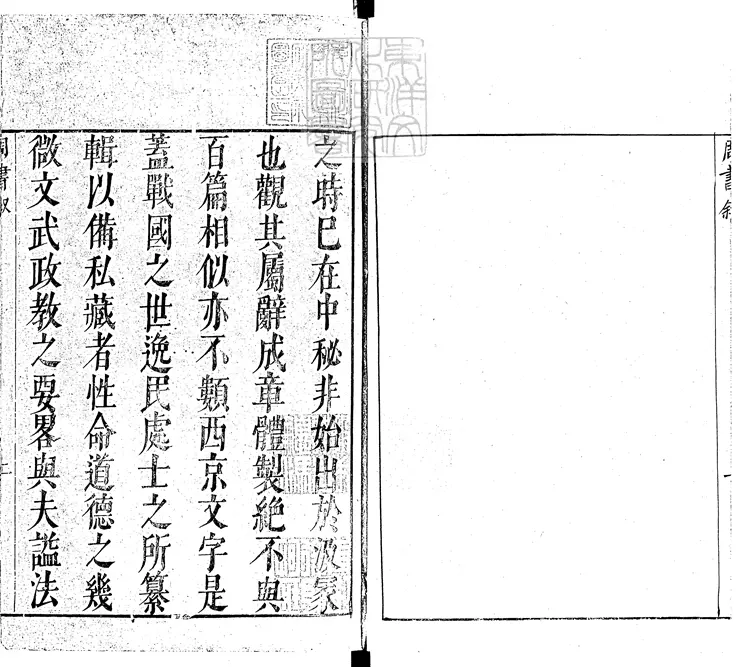 之時已在中秘非始出於汲冢
也觀其屬辭成章體製絶不與
百篇相似亦不類西京文字是
蓋戰國之世逸民處士之所纂
輯以備私藏者性命道德之幾
微文武政教之要畧與夫謚法
周書叙